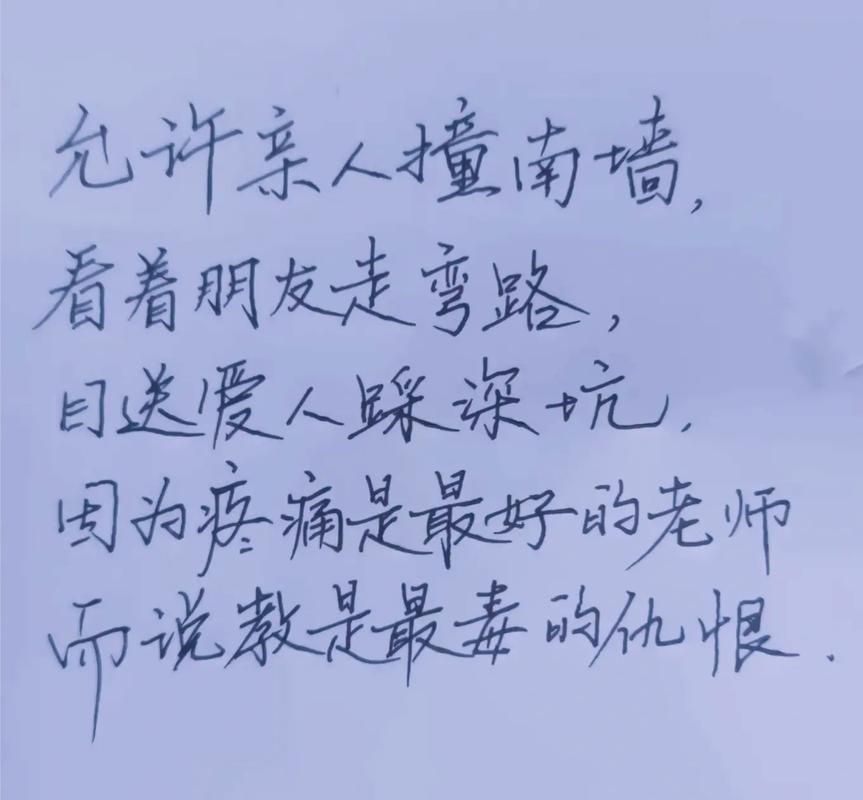 允许亲人撞南墙,
看着朋友走弯路,
目送爱人踩深坑.
因为疼痛是最好的老师
而说教是最毒的仇恨.